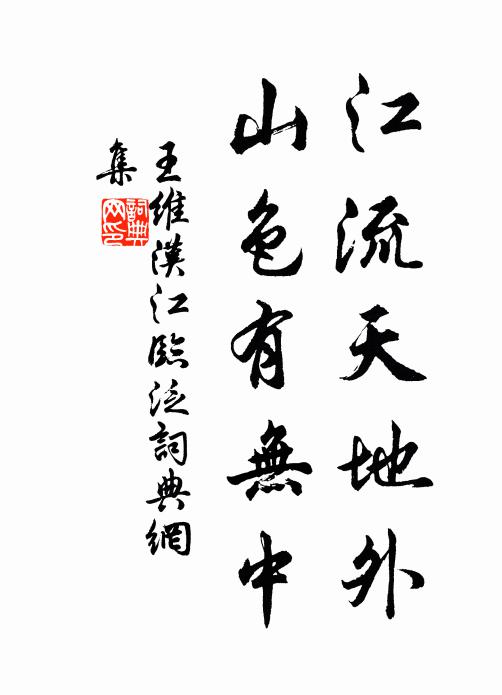 江流天地外
山色有無中
王維漢江臨泛詞典網
集
詞典
网印